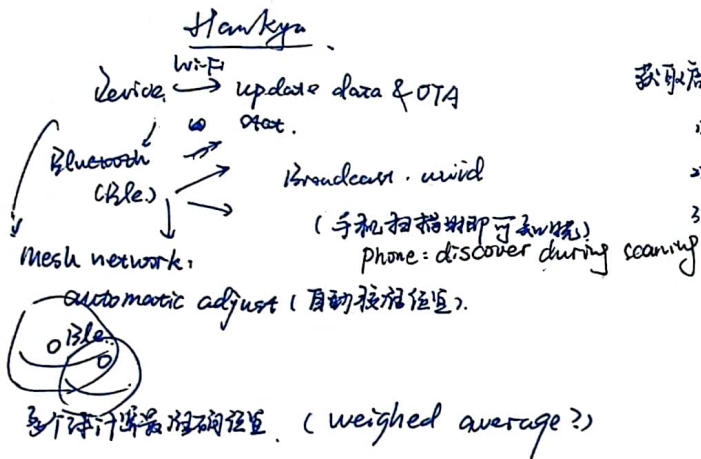 Hankyu.
Wi-Fi
Device → update data & OTA
获取
stat.
Bluetooth
(Ble)
Broadcast. uuid
2
3
(手机扫描时即可知晓)
phone: discover during scanning
Mesh network:
automatic adjust (自动校准位置).
Ble
多个球计算最准确位置. (weighed average?)